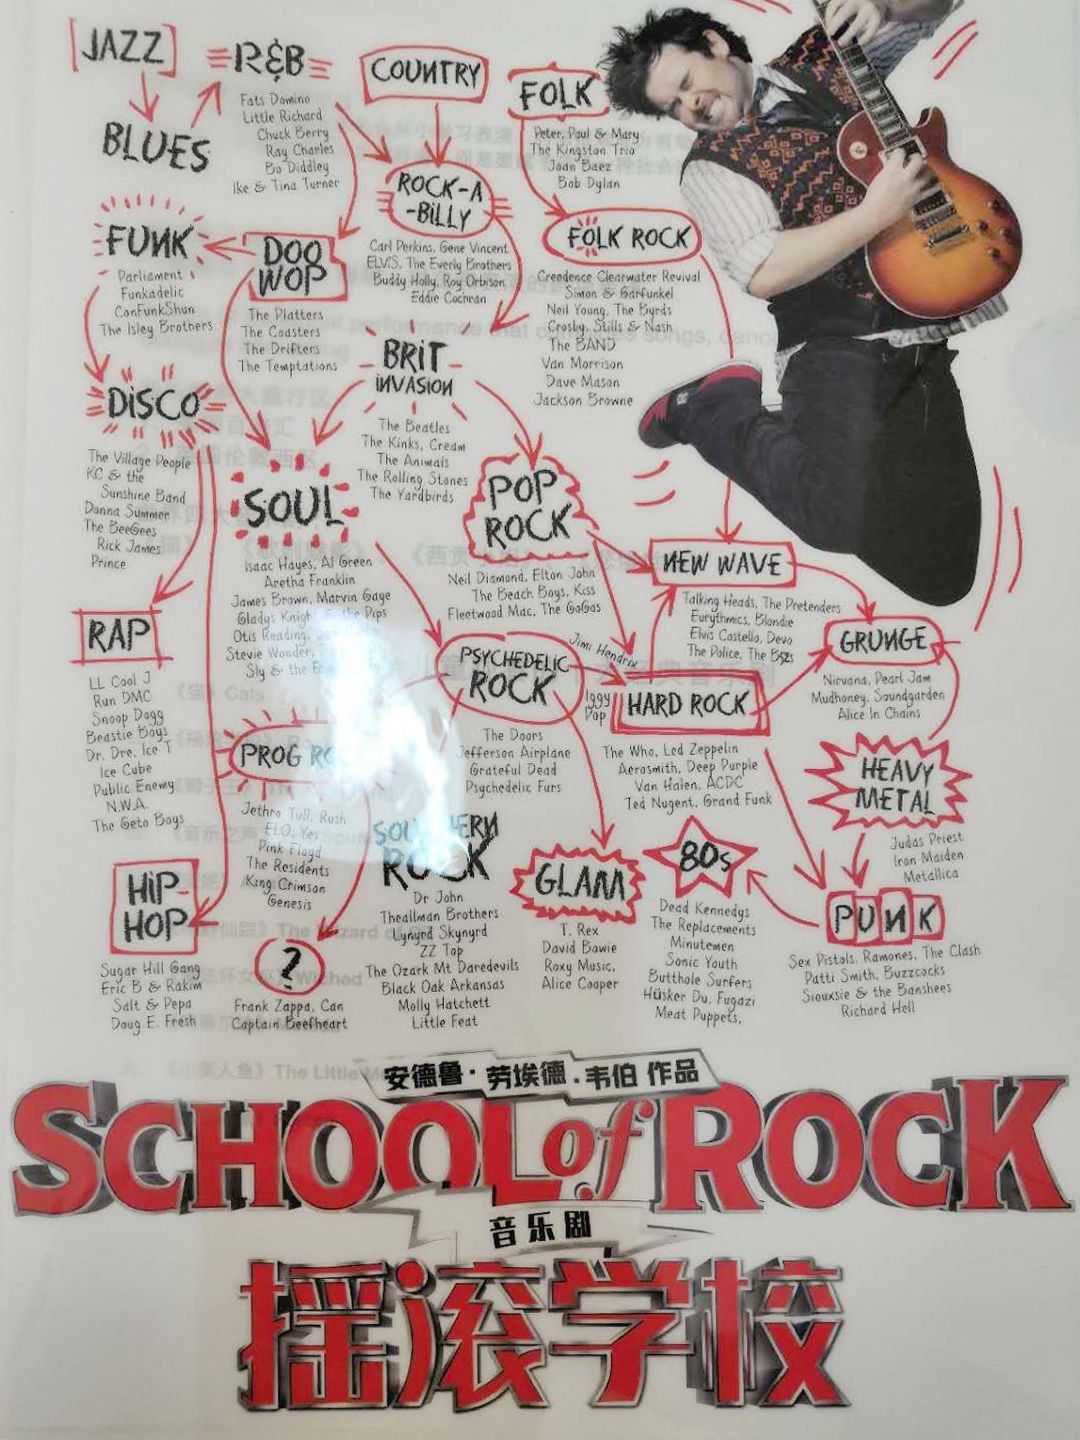 JAZZ
BLUES
R&B
Fats Domino
Little Richard
Chuck Berry
Ray Charles
Bo Diddley
Ike & Tina Turner
COUNTRY
FOLK
Peter, Paul & Mary
The Kingston Trio
Joan Baez
Bob Dylan
ROCK-A
-BILLY
Carl Perkins, Gene Vincent
ELVIS, The Everly Brothers
Buddy Holly, Roy Orbison
Eddie Cochran
FOLK ROCK
Creedence Clearwater Revival
Simon & Garfunkel
Neil Young, The Byrds
Crosby, Stills & Nash
The BAND
Van Morrison
Dave Mason
Jackson Browne
FUNK
Parliament
Funkadelic
ConFunkShun
The Isley Brothers
DOO
WOP
The Platters
The Coasters
The Drifters
The Temptations
BRIT
INVASION
The Beatles
The Kinks, Cream
The Animals
The Rolling Stones
The Yardbirds
DISCO
The Village People
KC & the
Sunshine Band
Donna Summer
The BeeGees
Rick James
Prince
SOUL
Isaac Hayes, Al Green
Aretha Franklin
James Brown, Marvin Gage
Gladys Knight & the Pips
Otis Reading,
Stevie Wonder,
Sly & the
POP
ROCK
Neil Diamond, Elton John
The Beach Boys, Kiss
Fleetwood Mac, The GoGos
NEW WAVE
Talking Heads, The Pretenders
Eurythmics, Blondie
Elvis Costello, Devo
The Police, The B52s
GRUNGE
Nirvana, Pearl Jam
Mudhoney, Soundgarden
Alice In Chains
RAP
LL Cool J
Run DMC
Snoop Dogg
Beastie Boys
Dr. Dre, Ice T
Ice Cube
Public Enemy
N.W.A.
The Geto Boys
PSYCHEDELIC
ROCK
The Doors
Jefferson Airplane
Grateful Dead
Psychedelic Furs
Jimi Hendrix
Iggy
Pop
HARD ROCK
The Who, Led Zeppelin
Aerosmith, Deep Purple
Van Halen, ACDC
Ted Nugent, Grand Funk
PROG
Jethro Tull, Rush
ELO, Yes
Pink Floyd
The Residents
King Crimson
Genesis
HEAVY
METAL
Judas Priest
Iron Maiden
Metallica
SOUTHERN
ROCK
Dr John
Theallman Brothers
Lynyrd Skynyrd
ZZ Top
The Ozark Mt Daredevils
Black Oak Arkansas
Molly Hatchett
Little Feat
GLAM
T. Rex
David Bowie
Roxy Music,
Alice Cooper
80s
Dead Kennedys
The Replacements
Minutemen
Sonic Youth
Butthole Surfers
Hüsker Du, Fugazi
Meat Puppets,
PUNK
Sex Pistols, Ramones, The Clash
Patti Smith, Buzzcocks
Siouxsie & the Banshees
Richard Hell
HIP
HOP
Sugar Hill Gang
Eric B & Rakim
Salt & Pepa
Doug E. Fresh
?
Frank Zappa, Can
Captain Beefheart
安德鲁·劳埃德·韦伯 作品
SCHOOL of ROCK
音乐剧
摇滚学校